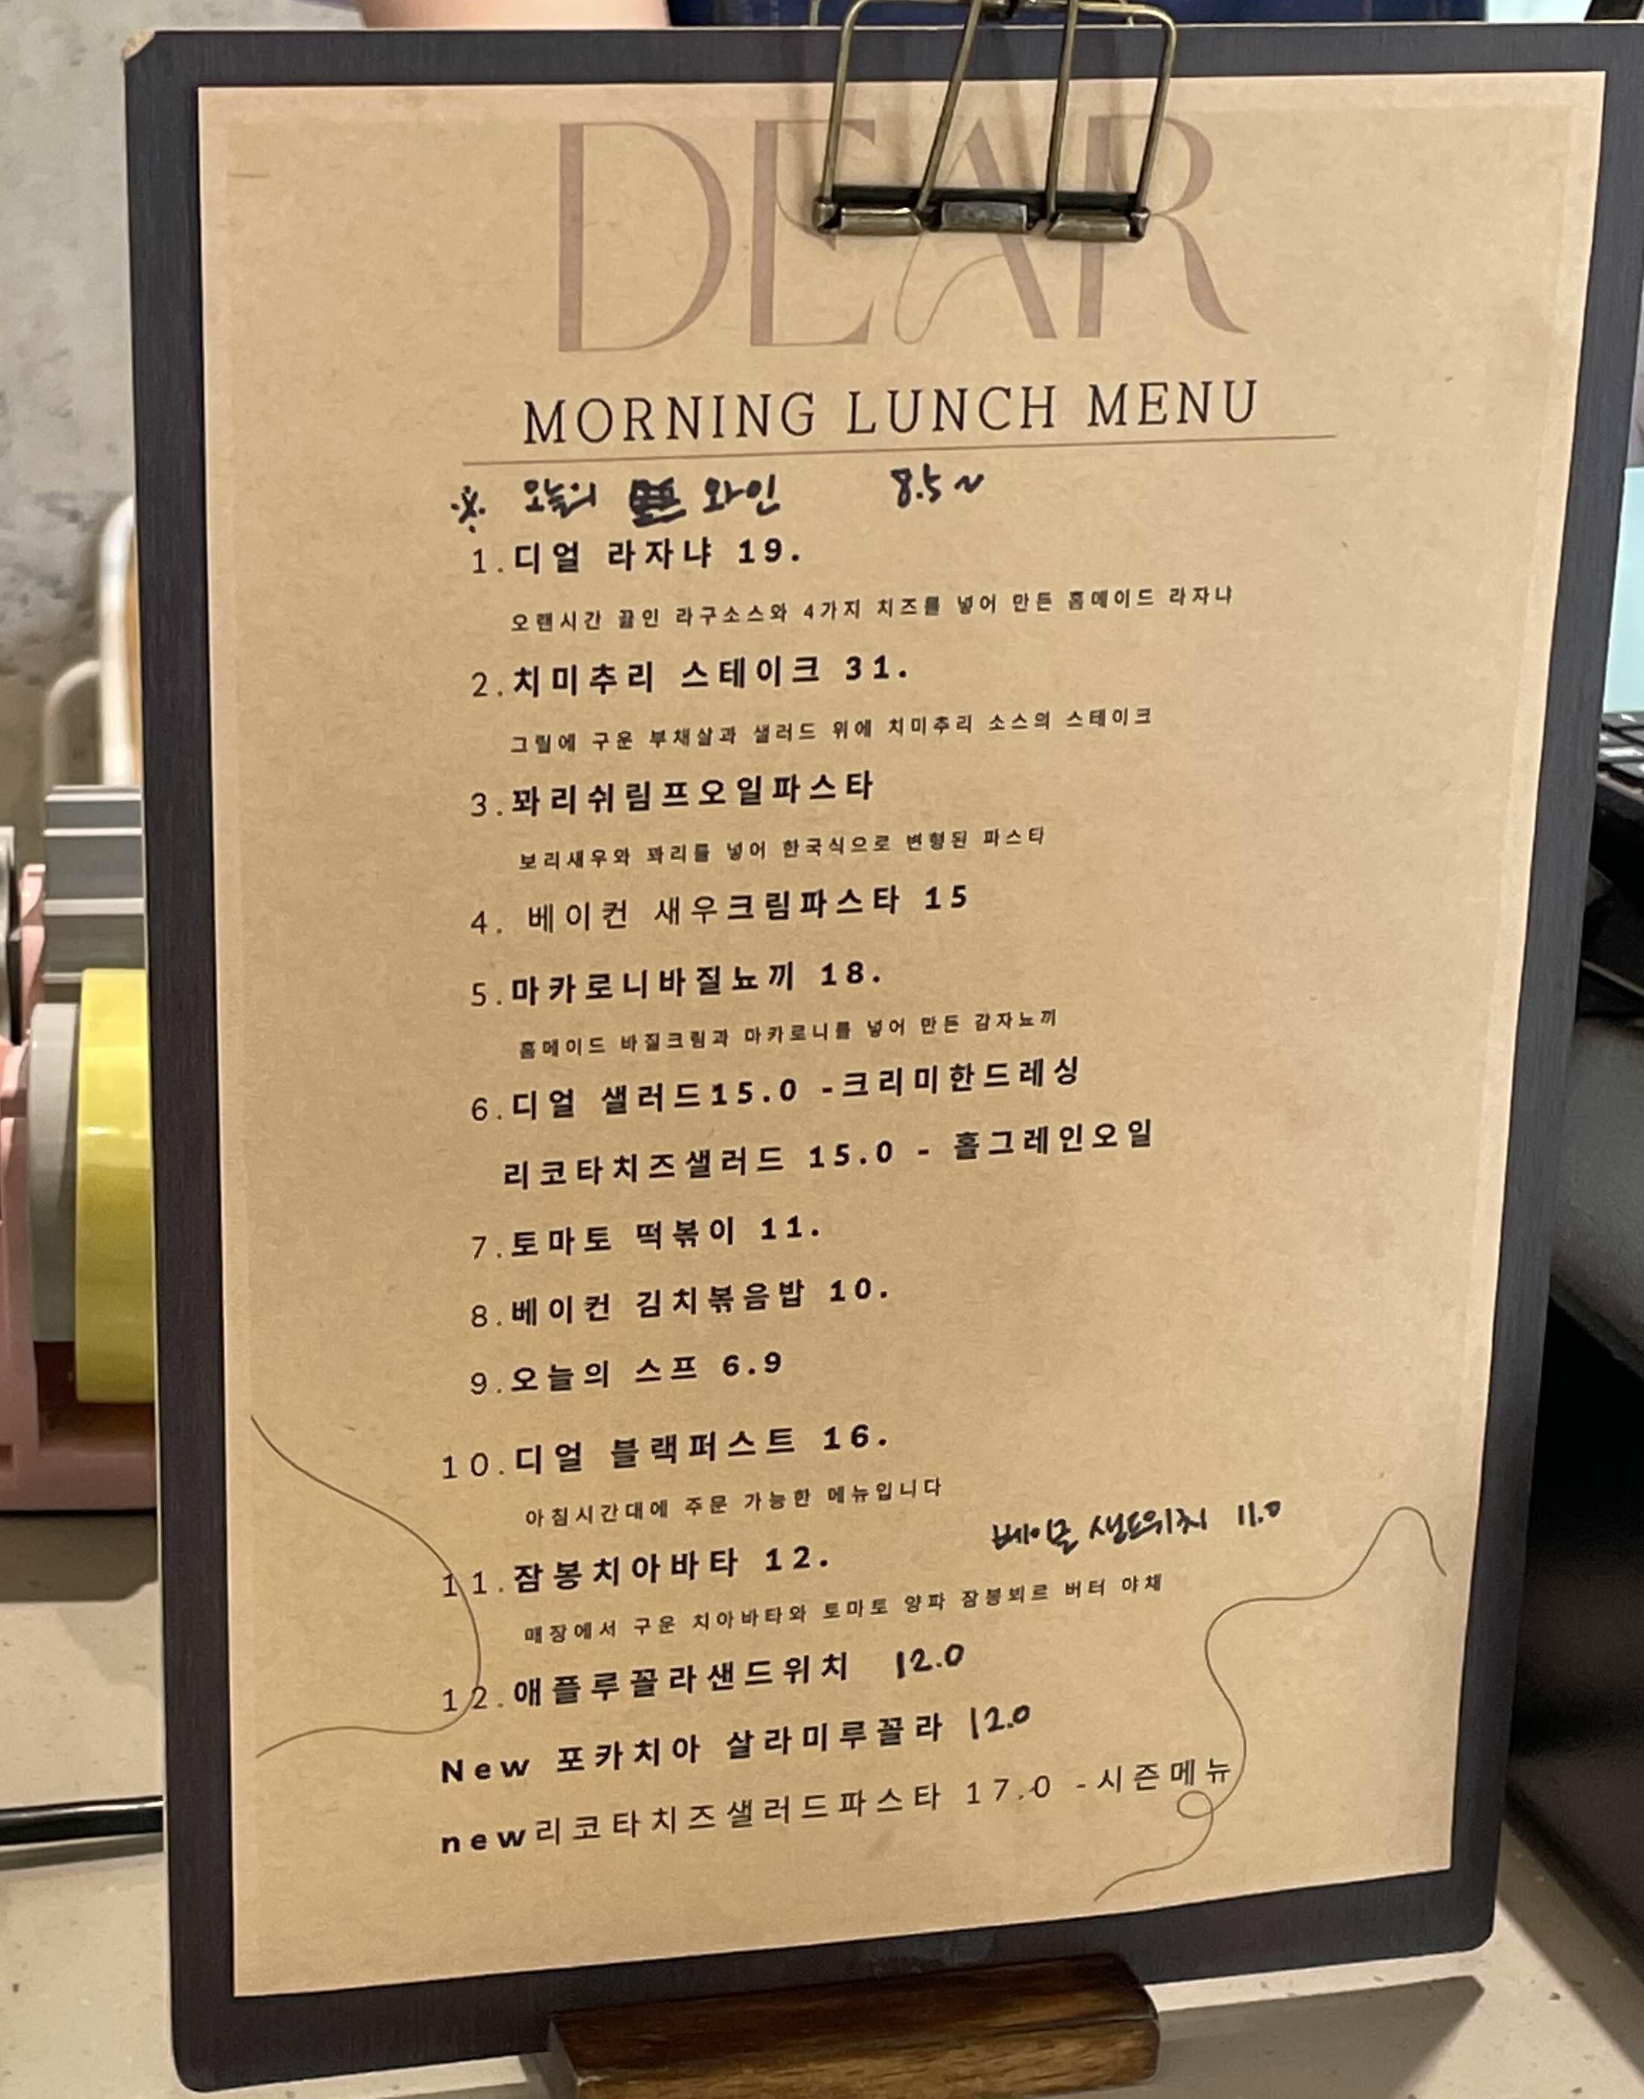 DEAR
MORNING LUNCH MENU
※ 오늘의 와인 8.5~
1.디얼 라자냐 19.
오랜시간 끓인 라구소스와 4가지 치즈를 넣어 만든 홈메이드 라자냐
2.치미추리 스테이크 31.
그릴에 구운 부채살과 샐러드 위에 치미추리 소스의 스테이크
3.꽈리쉬림프오일파스타
보리새우와 꽈리를 넣어 한국식으로 변형된 파스타
4. 베이컨 새우크림파스타 15
5.마카로니바질뇨끼 18.
홈메이드 바질크림과 마카로니를 넣어 만든 감자뇨끼
6.디얼 샐러드15.0 -크리미한드레싱
리코타치즈샐러드 15.0 - 홀그레인오일
7.토마토 떡볶이 11.
8.베이컨 김치볶음밥 10.
9.오늘의 스프 6.9
10.디얼 블랙퍼스트 16.
아침시간대에 주문 가능한 메뉴입니다
베이글 샌드위치 11.0
11.잠봉치아바타 12.
매장에서 구운 치아바타와 토마토 양파 잠봉뵈르 버터 야채
12.애플루꼴라샌드위치 12.0
New 포카치아 살라미루꼴라 12.0
new리코타치즈샐러드파스타 17.0 -시즌메뉴